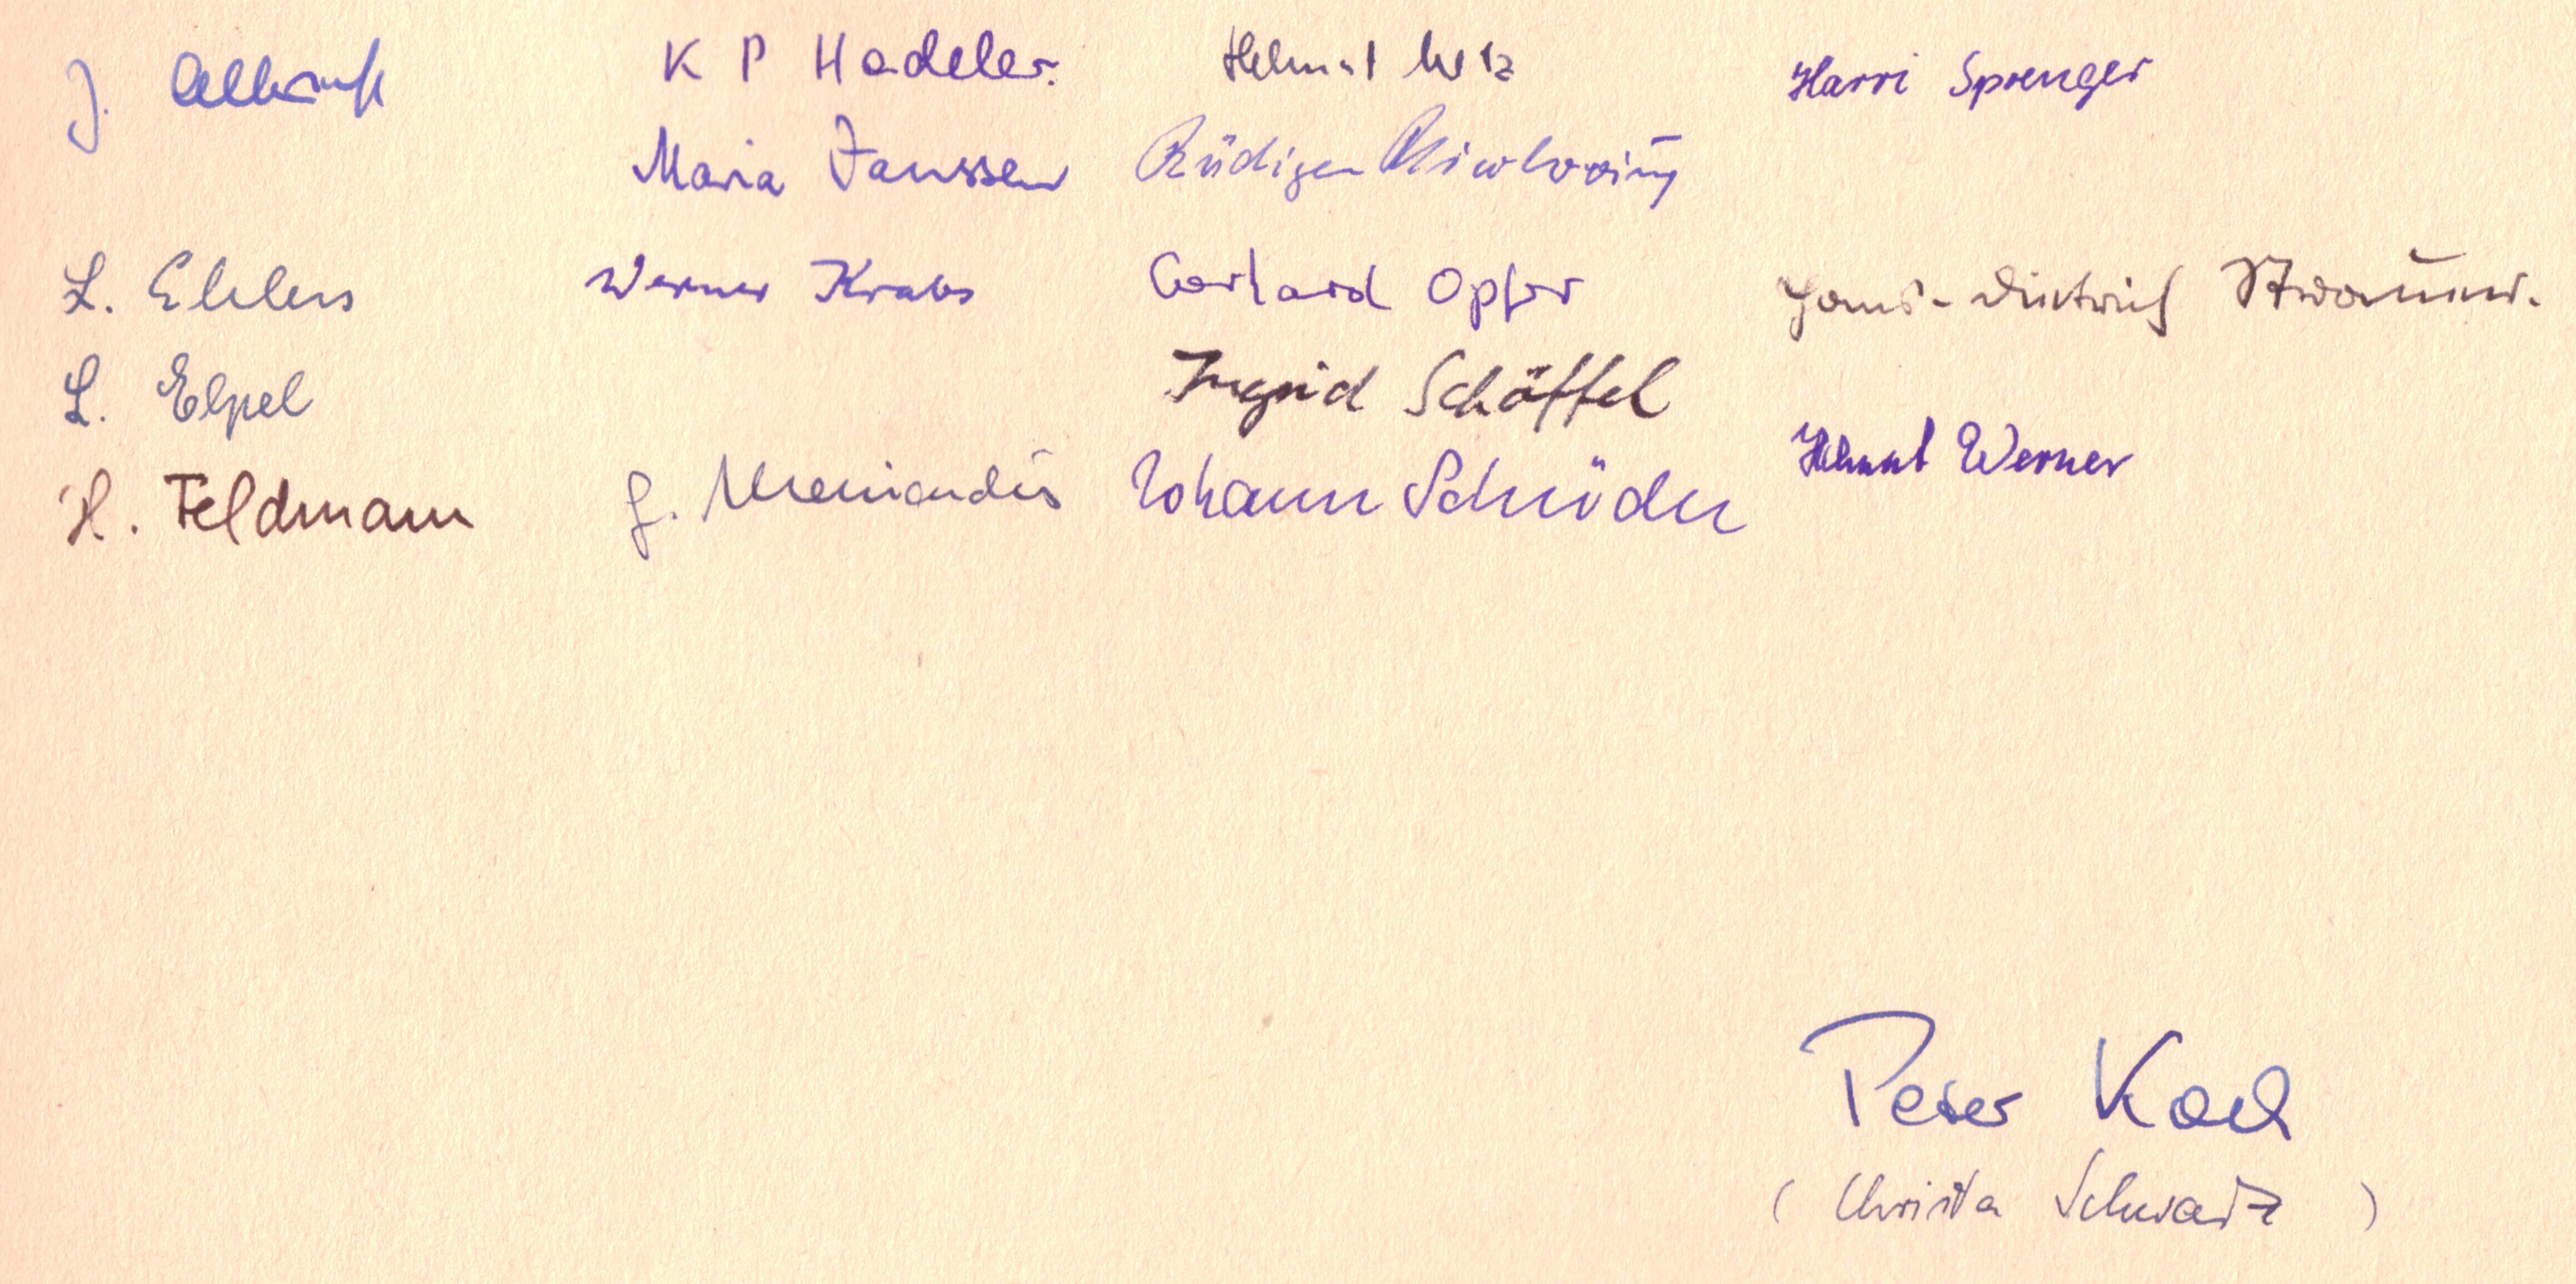 J. Albrecht
K P Hadeler.
Helmut Metz
Harri Sprenger
Maria Janssen
Rüdiger Nicolovius
L. Ehlers
Werner Krabs
Gerhard Opfer
Hans-Dietrich
L. Elpel
Ingrid Schöffel
Helmut Werner
H. Feldmann
J. Schröder
Johann Schröder
Peter Koch
( Christa Schwartz )